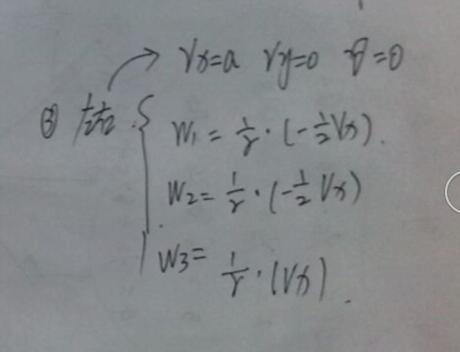 Vx=a Vy=0 θ̇=0
③
W₁ = 1/r · (-1/2Vx).
W₂ = 1/r · (-1/2 Vx)
W3 = 1/r · (Vx).